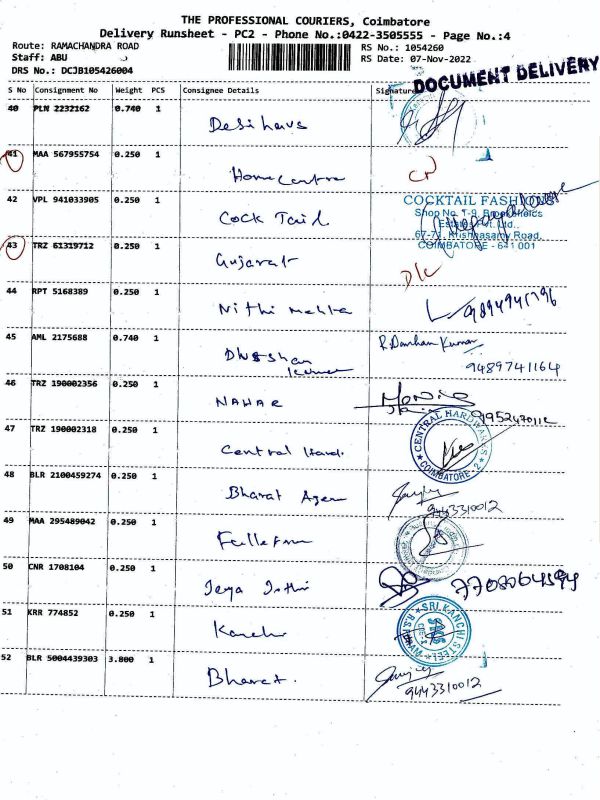 THE PROFESSIONAL COURIERS, Coimbatore
Delivery Runsheet - PC2 - Phone No.:0422-3505555 - Page No.:4
Route: RAMACHANDRA ROAD
Staff: ABU
DRS No.: DCJB105426004
RS No.: 1054260
RS Date: 07-Nov-2022
DOCUMENT DELIVERY
S No Consignment No Weight PCS Consignee Details Signature
40 PLN 2232162 0.740 1
41 MAA 567955754 0.250 1 Home Centre
42 VPL 941033905 0.250 1 Cock Tail
COCKTAIL FASHIONS
Shop No. T-9, Brookfields
Estates Pvt. Ltd.,
67-71, Krishnasamy Road,
COIMBATORE - 641 001
43 TRZ 61319712 0.250 1 Gujarat D/C
44 RPT 5168389 0.250 1 Nithi Mehta
45 AML 2175688 0.740 1
9489741164
46 TRZ 190002356 0.250 1 NAHAR
47 TRZ 190002318 0.250 1 Central Hard.
CENTRAL HARDWARES
COIMBATORE - 2
48 BLR 2100459274 0.250 1 Bharat Agen
9443310012
49 MAA 295489042 0.250 1
50 CNR 1708104 0.250 1 Jeya Jothi
51 KRR 774852 0.250 1 Kanchi
SRI KANCHI STEEL
52 BLR 5004439303 3.800 1 Bharat.
9443310012